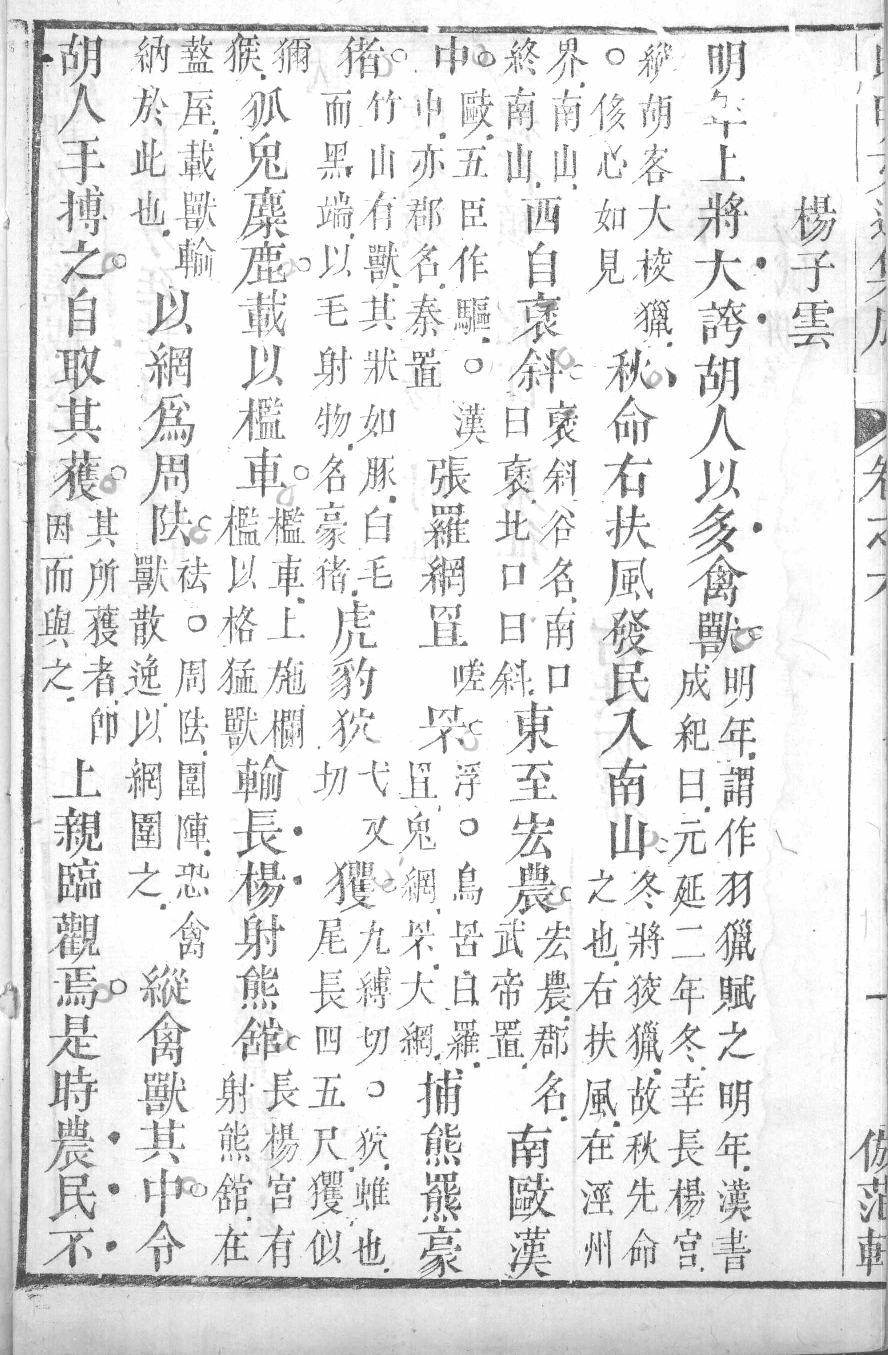 楊子雲
明年上將大誇胡人以多禽獸明年謂作羽獵賦之明年漢書成紀曰元延二年冬幸長楊宮
縱胡客大校獵○侈必如見秋命右扶風發民入南山冬將狡獵故秋先命之也右扶風在涇州
界南山終南山西自褒斜褒斜谷名南口曰褒北口曰斜東至宏農宏農郡名武帝置南敺漢
中敺五臣作驅○漢中亦郡名秦置張羅網罝嗟罘浮○鳥罟曰羅罝兔網罘大網捕熊羆豪
猪竹山有獸其狀如豚白毛而黑端以毛射物名豪猪虎豹狖弋又切玃九縛切○狖蜼也尾長四五尺玃似
獼猴狐兔麋鹿載以檻車檻車上施欄檻以格猛獸輸長楊射熊舘長楊宮有射熊舘在
盩厔載獸輸納於此也以網爲周阹祛○周阹圍陣恐禽獸散逸以網圍之縱禽獸其中令
胡人手搏之自取其獲其所獲者卽因而與之上親臨觀焉是時農民不